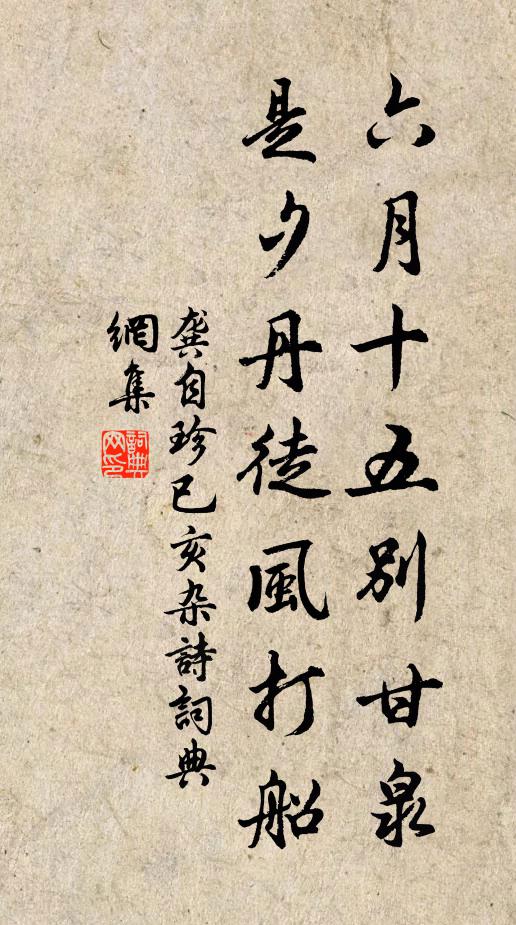 六月十五別甘泉
是夕丹徒風打船
龔自珍已亥杂詩詞典
網集
詞典
网印